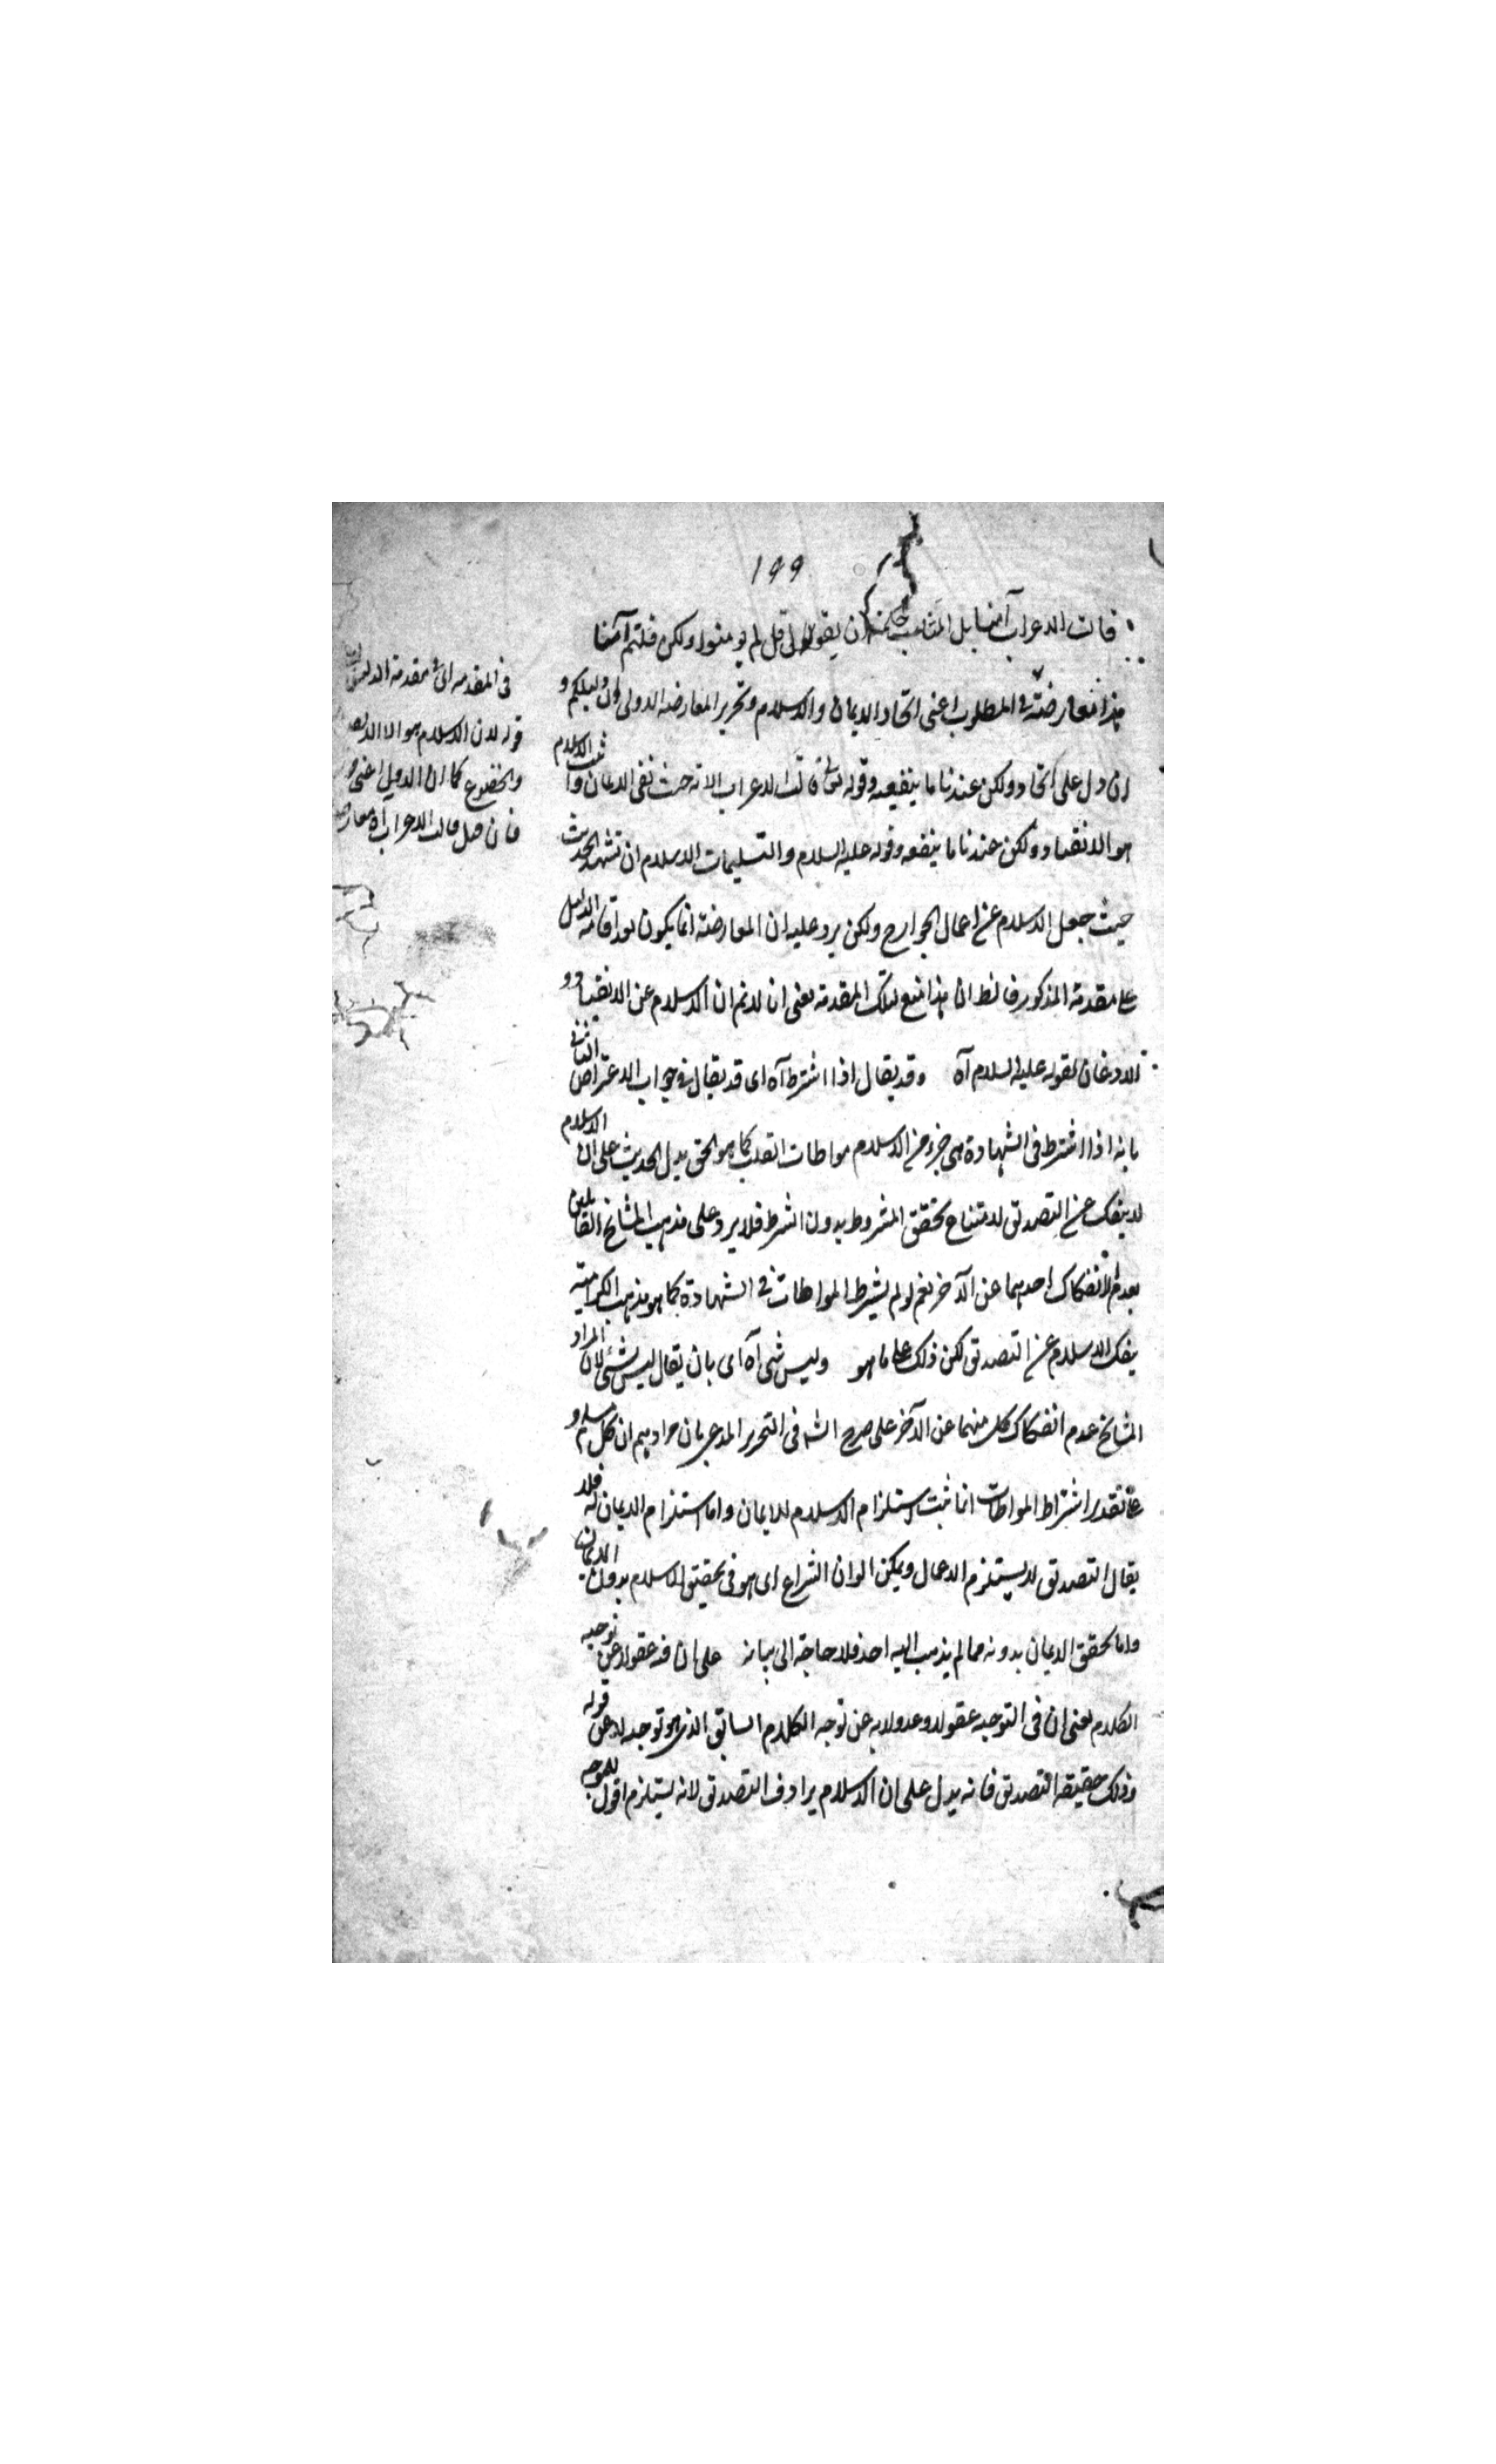 199
قالت الاعراب آمنا بل المناسب ان يقول قل لم تومنوا ولكن قلتم آمنا
هذا معارضة في المطلوب اعنى اتحاد الايمان والاسلام وتحرير المعارضة الاولى ان دليلكم و
ان دل على اتحاد ولكن عندنا ما ينفيه وقوله تع قالت الاعراب الآية حيث نفى الايمان واثبت الاسلام
هو الانقياد ولكن عندنا ما ينفيه وقوله عليه السلام والتسليمات الاسلام ان تشهد الحديث
حيث جعل الاسلام عن اعمال الجوارح ولكن يرد عليه ان المعارضة انما يكون بعد اقامة الدليل
على مقدمة المذكور فالظ ان هذا منع لتلك المقدمة يعنى انا لانم ان الاسلام عن الانقياد و
الاذعان لقوله عليه السلام آه وقد يقال اذا اشترط آه اى قد يقال في جواب الاعتراض الثانى
بانه اذا اشترط فى الشهادة هى جزء من الاسلام مواطات القلب كما هو الحق يدل الحديث على ان الاسلام
لا ينفك عن التصديق لامتناع تحقق المشروط بدون الشرط فلا يرد على مذهب المشايخ القائلين
بعدم الانفكاك احدهما عن الآخر نعم لو لم يشترط المواطات في الشهادة كما هو مذهب الكرامية
ينفك الاسلام عن التصديق لكن ذلك على ما هو وليس بشى آه اى بان يقال ليس بشئ لان المراد
المشايخ عدم انفكاك كل منهما عن الآخر على صرح الشه فى التحرير المدعى بان مرادهم ان كل مسلم و
على تقدير اشتراط المواطات انما ثبت استلزام الاسلام للايمان واما استلزام الايمان له فلا
يقال التصديق لا يستلزم الاعمال ويمكن النزاع اى هو فى تحقيق الاسلام بدون الايمان
واما تحقق الايمان بدونه مما لم يذهب اليه احد فلا حاجة الى بيانه على ان فيه عقولا عن توجيه
الكلام يعنى ان فى التوجيه عقولا وعدولا به عن توجه الكلام السابق الذى هو توجيه لا عن قوله
وذلك حقيقة التصديق فانه يدل على ان الاسلام يرادف التصديق لانه يستلزم اقول للموجه
فى المقدمه اى في مقدمة الدليل
قوله لان الاسلام هو الا
والخضوع كما ان الاول اعنى
فان قيل قالت الاعراب آه